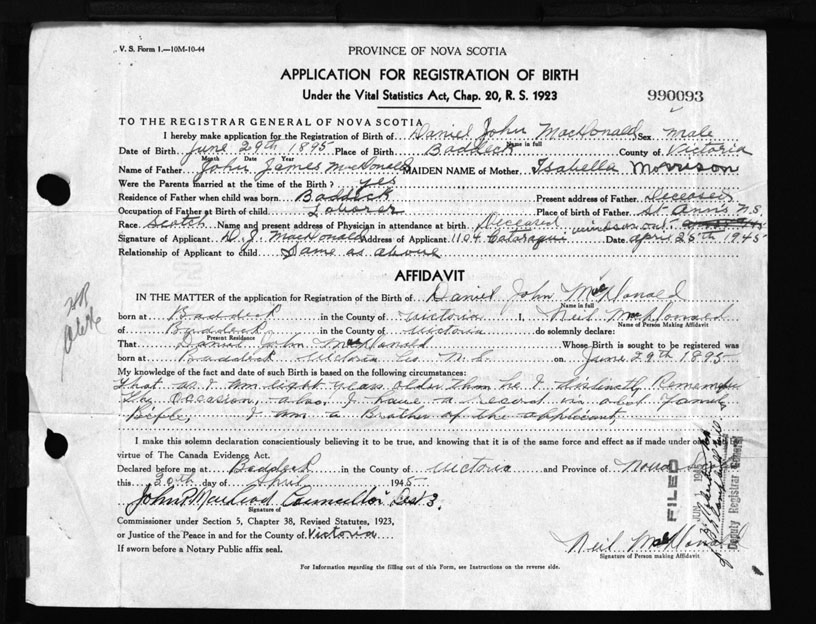 V. S. Form 1.—10M-10-44
PROVINCE OF NOVA SCOTIA
APPLICATION FOR REGISTRATION OF BIRTH
Under the Vital Statistics Act, Chap. 20, R. S. 1923
990093
TO THE REGISTRAR GENERAL OF NOVA SCOTIA
I hereby make application for the Registration of Birth of Daniel John MacDonald Sex male
Name in full
Date of Birth June 29th 1895 Place of Birth Baddeck County of Victoria
Month Date Year
Name of Father John James McDonald MAIDEN NAME of Mother Isabella Morrison
Were the Parents married at the time of the Birth? yes
Residence of Father when child was born Baddeck Present address of Father Deceased
Occupation of Father at Birth of child Laborer Place of birth of Father St. Ann's N.S.
Race Scotch Name and present address of Physician in attendance at birth Deceased
Signature of Applicant D. J. MacDonald Address of Applicant 1104 Cataraqui Windsor Ont. Date april 26th 1945
Relationship of Applicant to child Same as above
AFFIDAVIT
IN THE MATTER of the application for Registration of the Birth of Daniel John MacDonald
Name in full
born at Baddeck in the County of Victoria I, Neil MacDonald
Name of Person Making Affidavit
of Baddeck in the County of Victoria do solemnly declare:
Present Residence
That Daniel John MacDonald Whose Birth is sought to be registered was
born at Baddeck Victoria Co N.S. on June 29th 1895
My knowledge of the fact and date of such Birth is based on the following circumstances:
That as I am eight years older than he I distinctly Remember
the Occasion, also I have a record in our family
Bible, I am a Brother of the applicant,
I make this solemn declaration conscientiously believing it to be true, and knowing that it is of the same force and effect as if made under oath
virtue of The Canada Evidence Act.
Declared before me at Baddeck in the County of Victoria and Province of Nova
this 20th day of April 1945
John P MacLeod Councillor Dist 3.
Signature of
Commissioner under Section 5, Chapter 38, Revised Statutes, 1923,
or Justice of the Peace in and for the County of Victoria
If sworn before a Notary Public affix seal.
Neil MacDonald
Signature of Person making Affidavit
For Information regarding the filling out of this Form, see Instructions on the reverse side.
FILED
JUN 1 1945
Deputy Registrar General